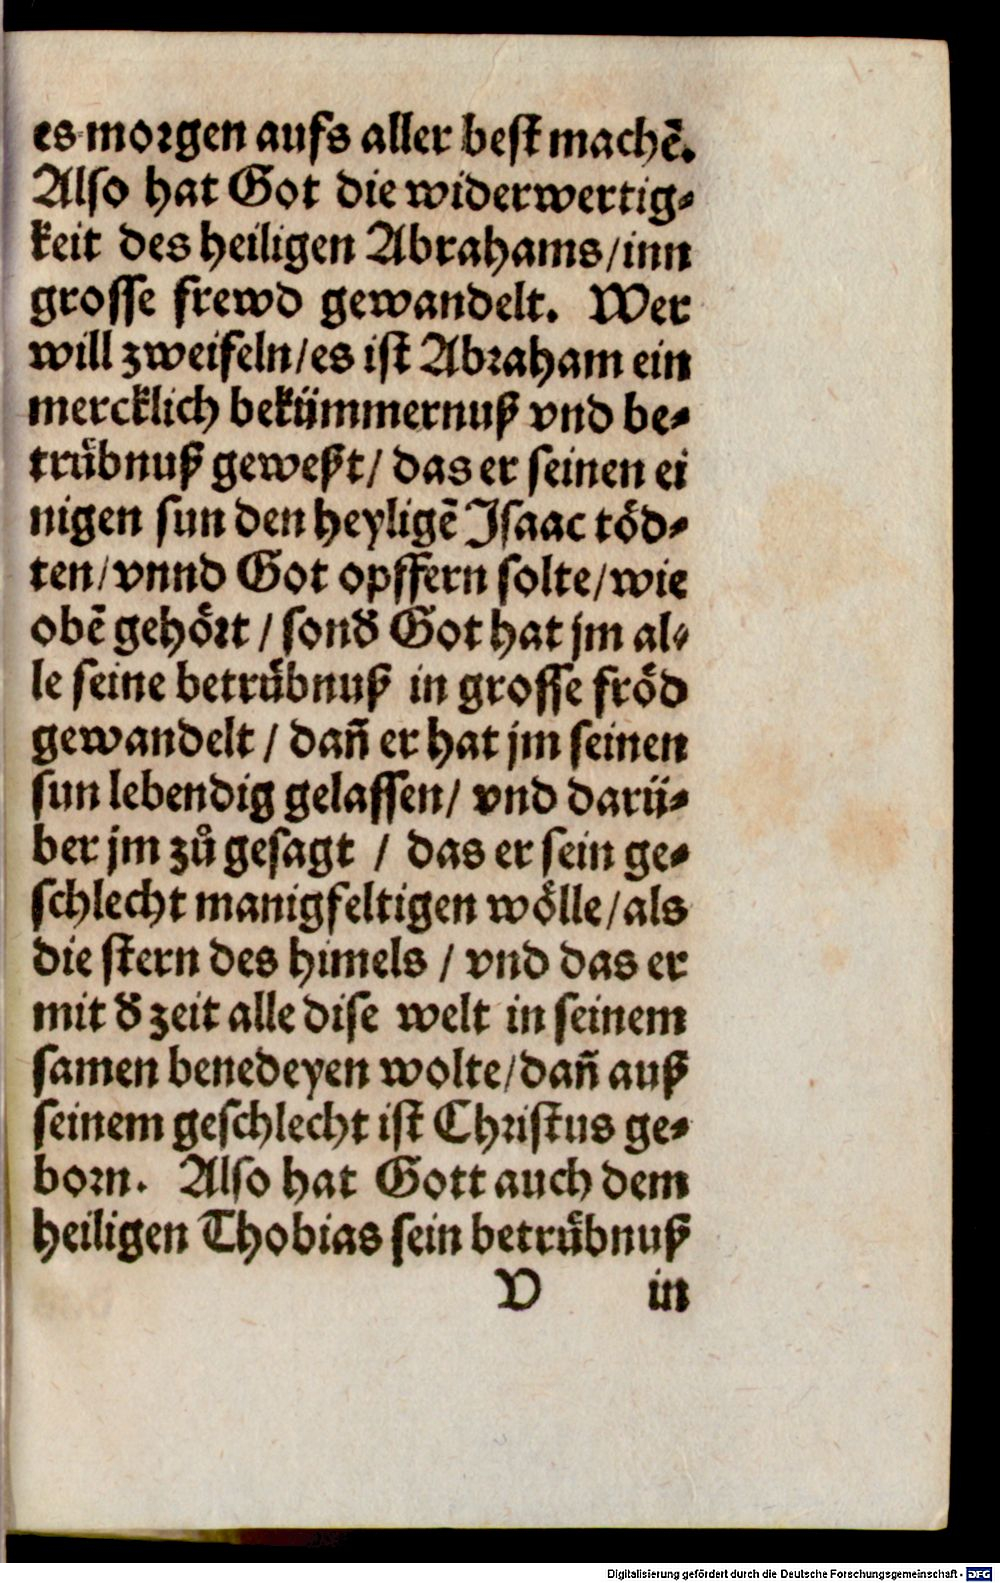 es morgen aufs aller best machẽ.
Also hat Got die widerwertig⸗
keit des heiligen Abrahams/inn
grosse frewd gewandelt. Wer
will zweifeln/es ist Abraham ein
mercklich bekümmernuß vnd be⸗
trůbnuß geweßt/ das er seinen ei
nigen sun den heyligẽ Isaac töd⸗
ten/vnnd Got opffern solte/wie
obẽ gehört / sonđ Got hat jm al⸗
le seine betrůbnuß in grosse fröd
gewandelt / dañ er hat jm seinen
sun lebendig gelassen/ vnd darü⸗
ber jm zů gesagt / das er sein ge⸗
schlecht manigfeltigen wölle/als
die stern des himels / vnd das er
mit đ zeit alle dise welt in seinem
samen benedeyen wolte/dañ auß
seinem geschlecht ist Christus ge⸗
born. Also hat Gott auch dem
heiligen Thobias sein betrůbnuß
V in
Digitalisierung gefördert durch die Deutsche Forschungsgemeinschaft - DFG